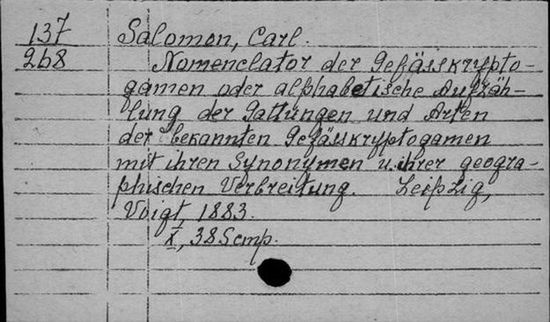 137 Salomon, Carl.
268 Nomenclator der Gefässkrypto-
gamen oder alphabetische Aufzäh-
lung der Gattungen und Arten
der bekannten Gefässkryptogamen
mit ihren Synonymen u. ihrer geogra-
phischen Verbreitung. Leipzig,
Voigt, 1883.
X, 385 стр.